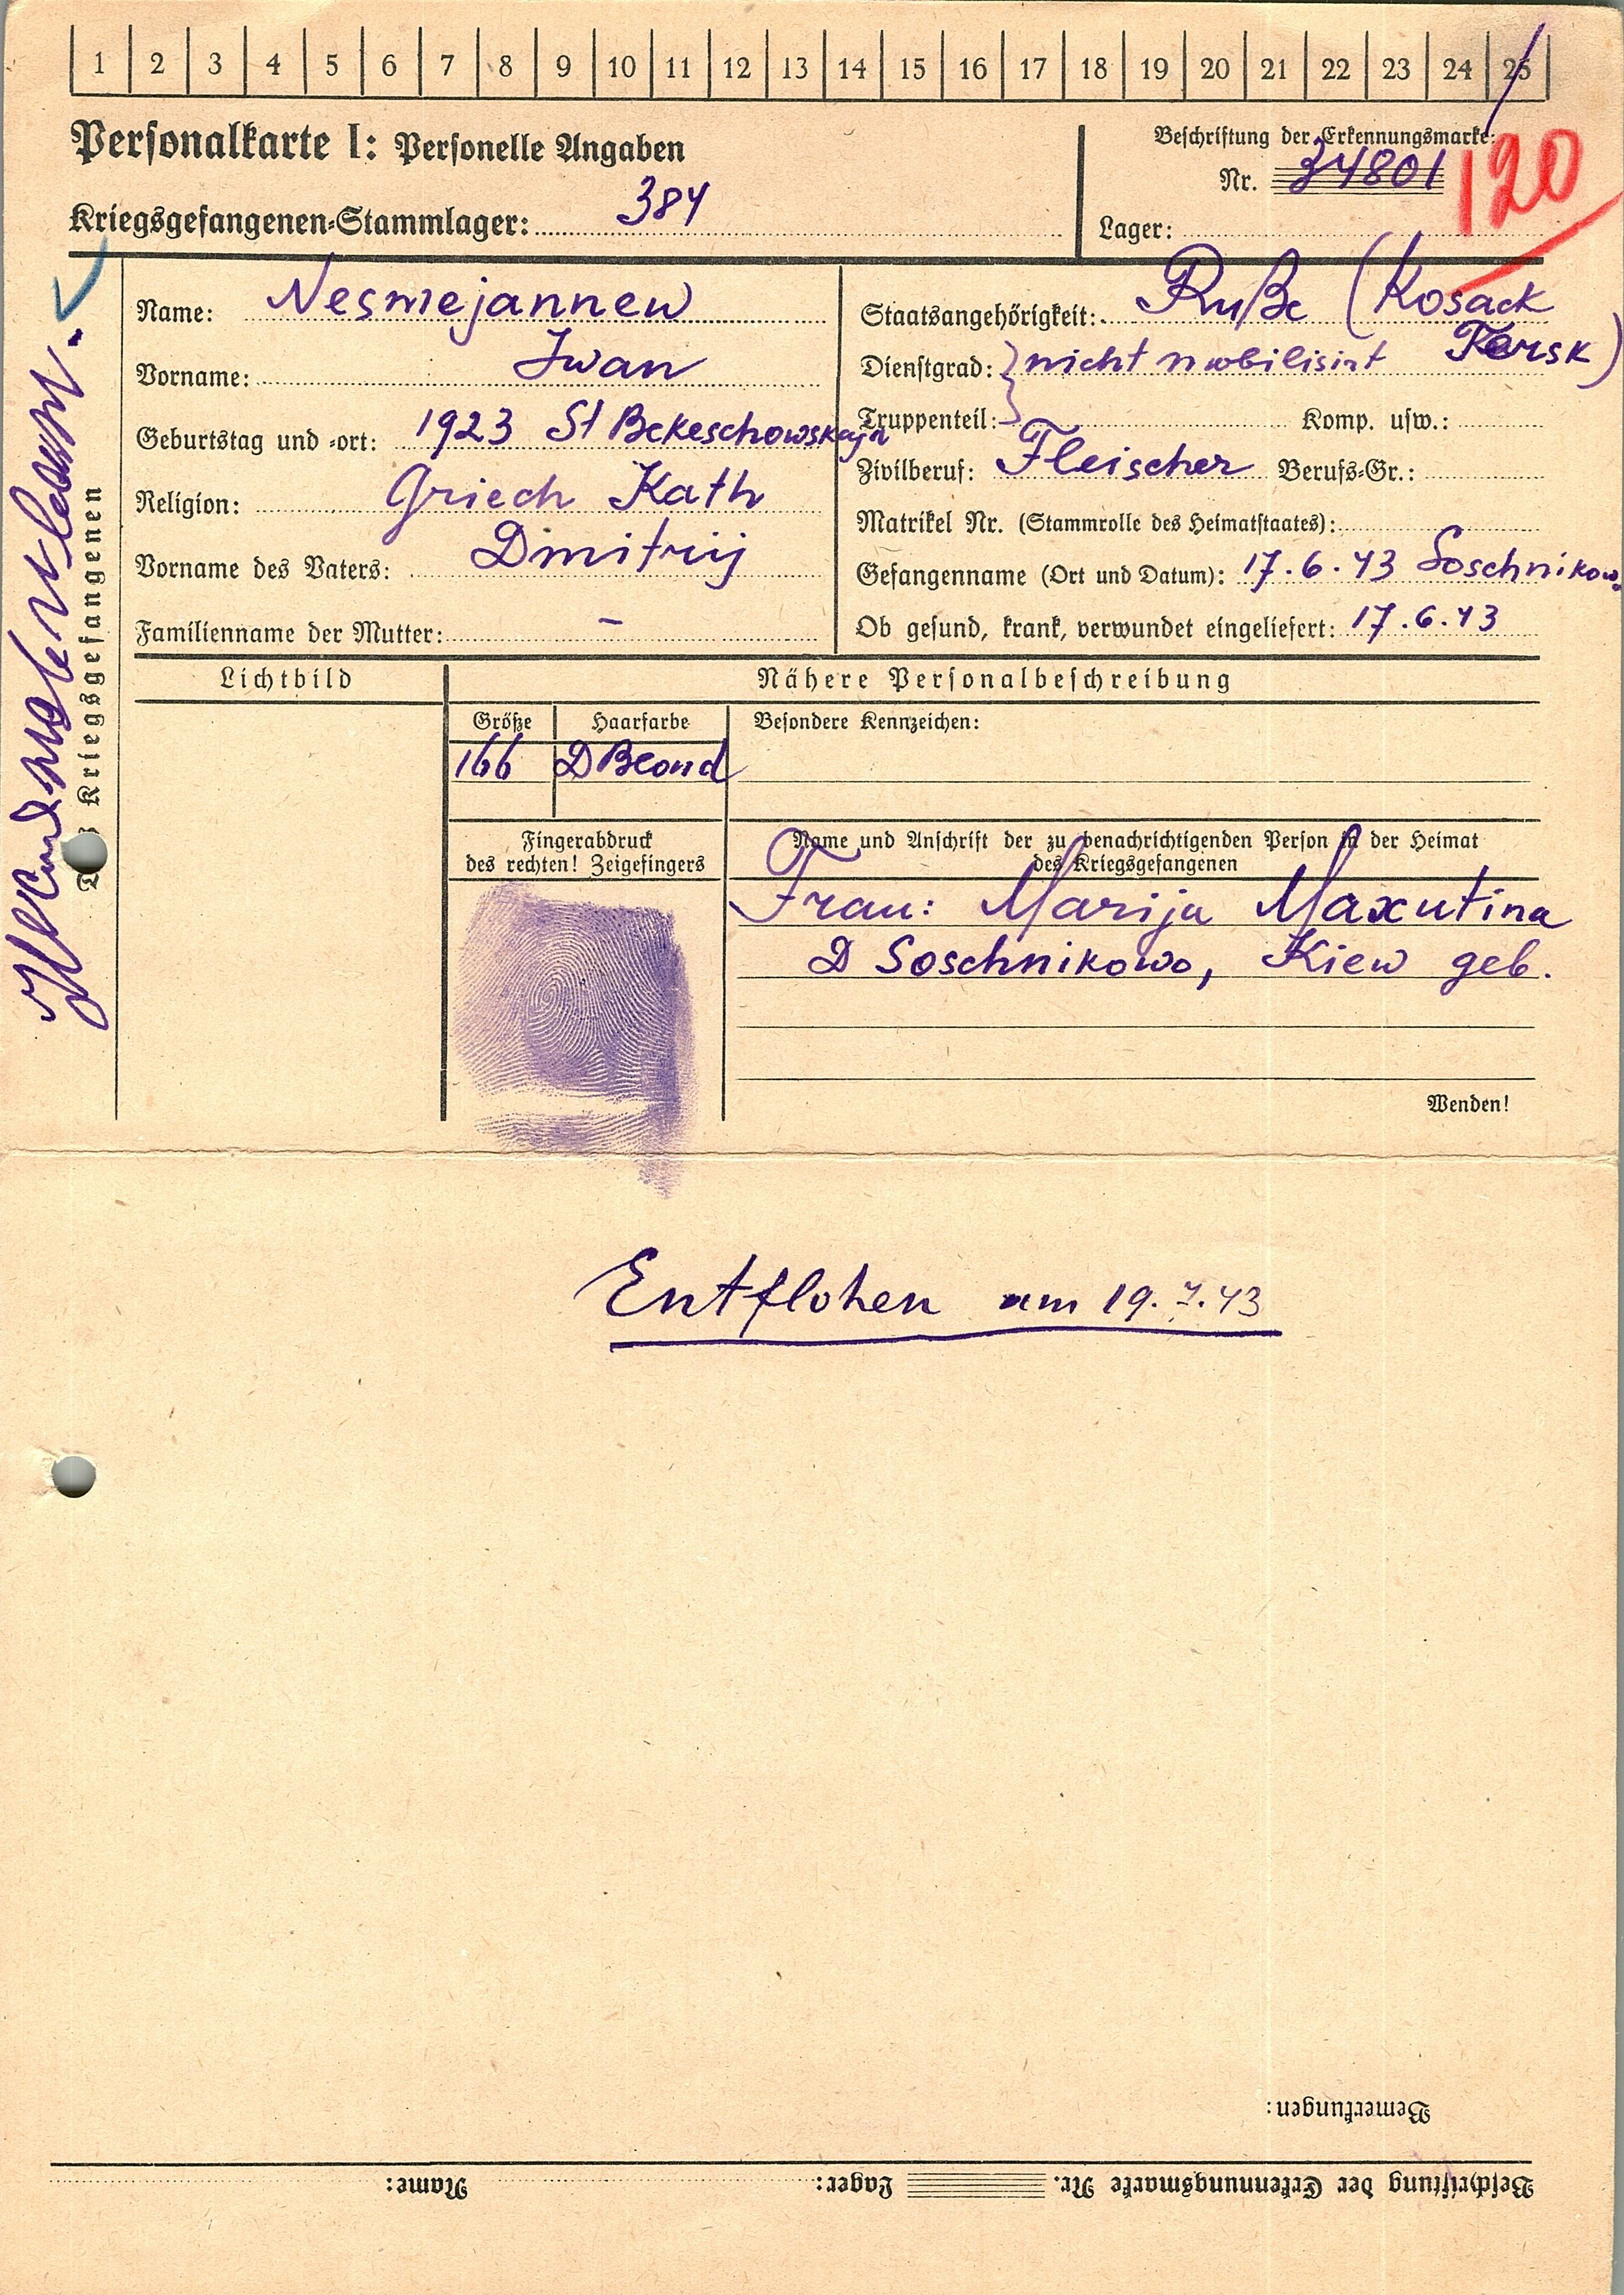 1 2 3 4 5 6 7 8 9 10 11 12 13 14 15 16 17 18 19 20 21 22 23 24 25
Personalkarte I: Personelle Angaben
Kriegsgefangenen-Stammlager: 384
Beschriftung der Erkennungsmarke:
Nr. 34801
120
Lager:
des Kriegsgefangenen
Name: Nesmejannew
Vorname: Iwan
Geburtstag und -ort: 1923 St Bekeschowskaja
Religion: Griech Kath
Vorname des Vaters: Dmitrij
Familienname der Mutter: –
Staatsangehörigkeit: Ruße (Kosack
Tersk)
Dienstgrad: nicht mobilisirt
Truppenteil: Komp. usw.:
Zivilberuf: Fleischer Berufs-Gr.:
Matrikel Nr. (Stammrolle des Heimatstaates):
Gefangenname (Ort und Datum): 17.6.43 Soschnikow.
Ob gesund, krank, verwundet eingeliefert: 17.6.43
Lichtbild
Nähere Personalbeschreibung
Größe Haarfarbe Besondere Kennzeichen:
166 D Blond
Fingerabdruck
des rechten! Zeigefingers
Name und Anschrift der zu benachrichtigenden Person in der Heimat
des Kriegsgefangenen
Frau: Marija Maxutina
D Soschnikowo, Kiew geb.
Wenden!
Entflohen am 19.7.43
Bemerkungen:
Beschriftung der Erkennungsmarke Nr. Lager: Name: